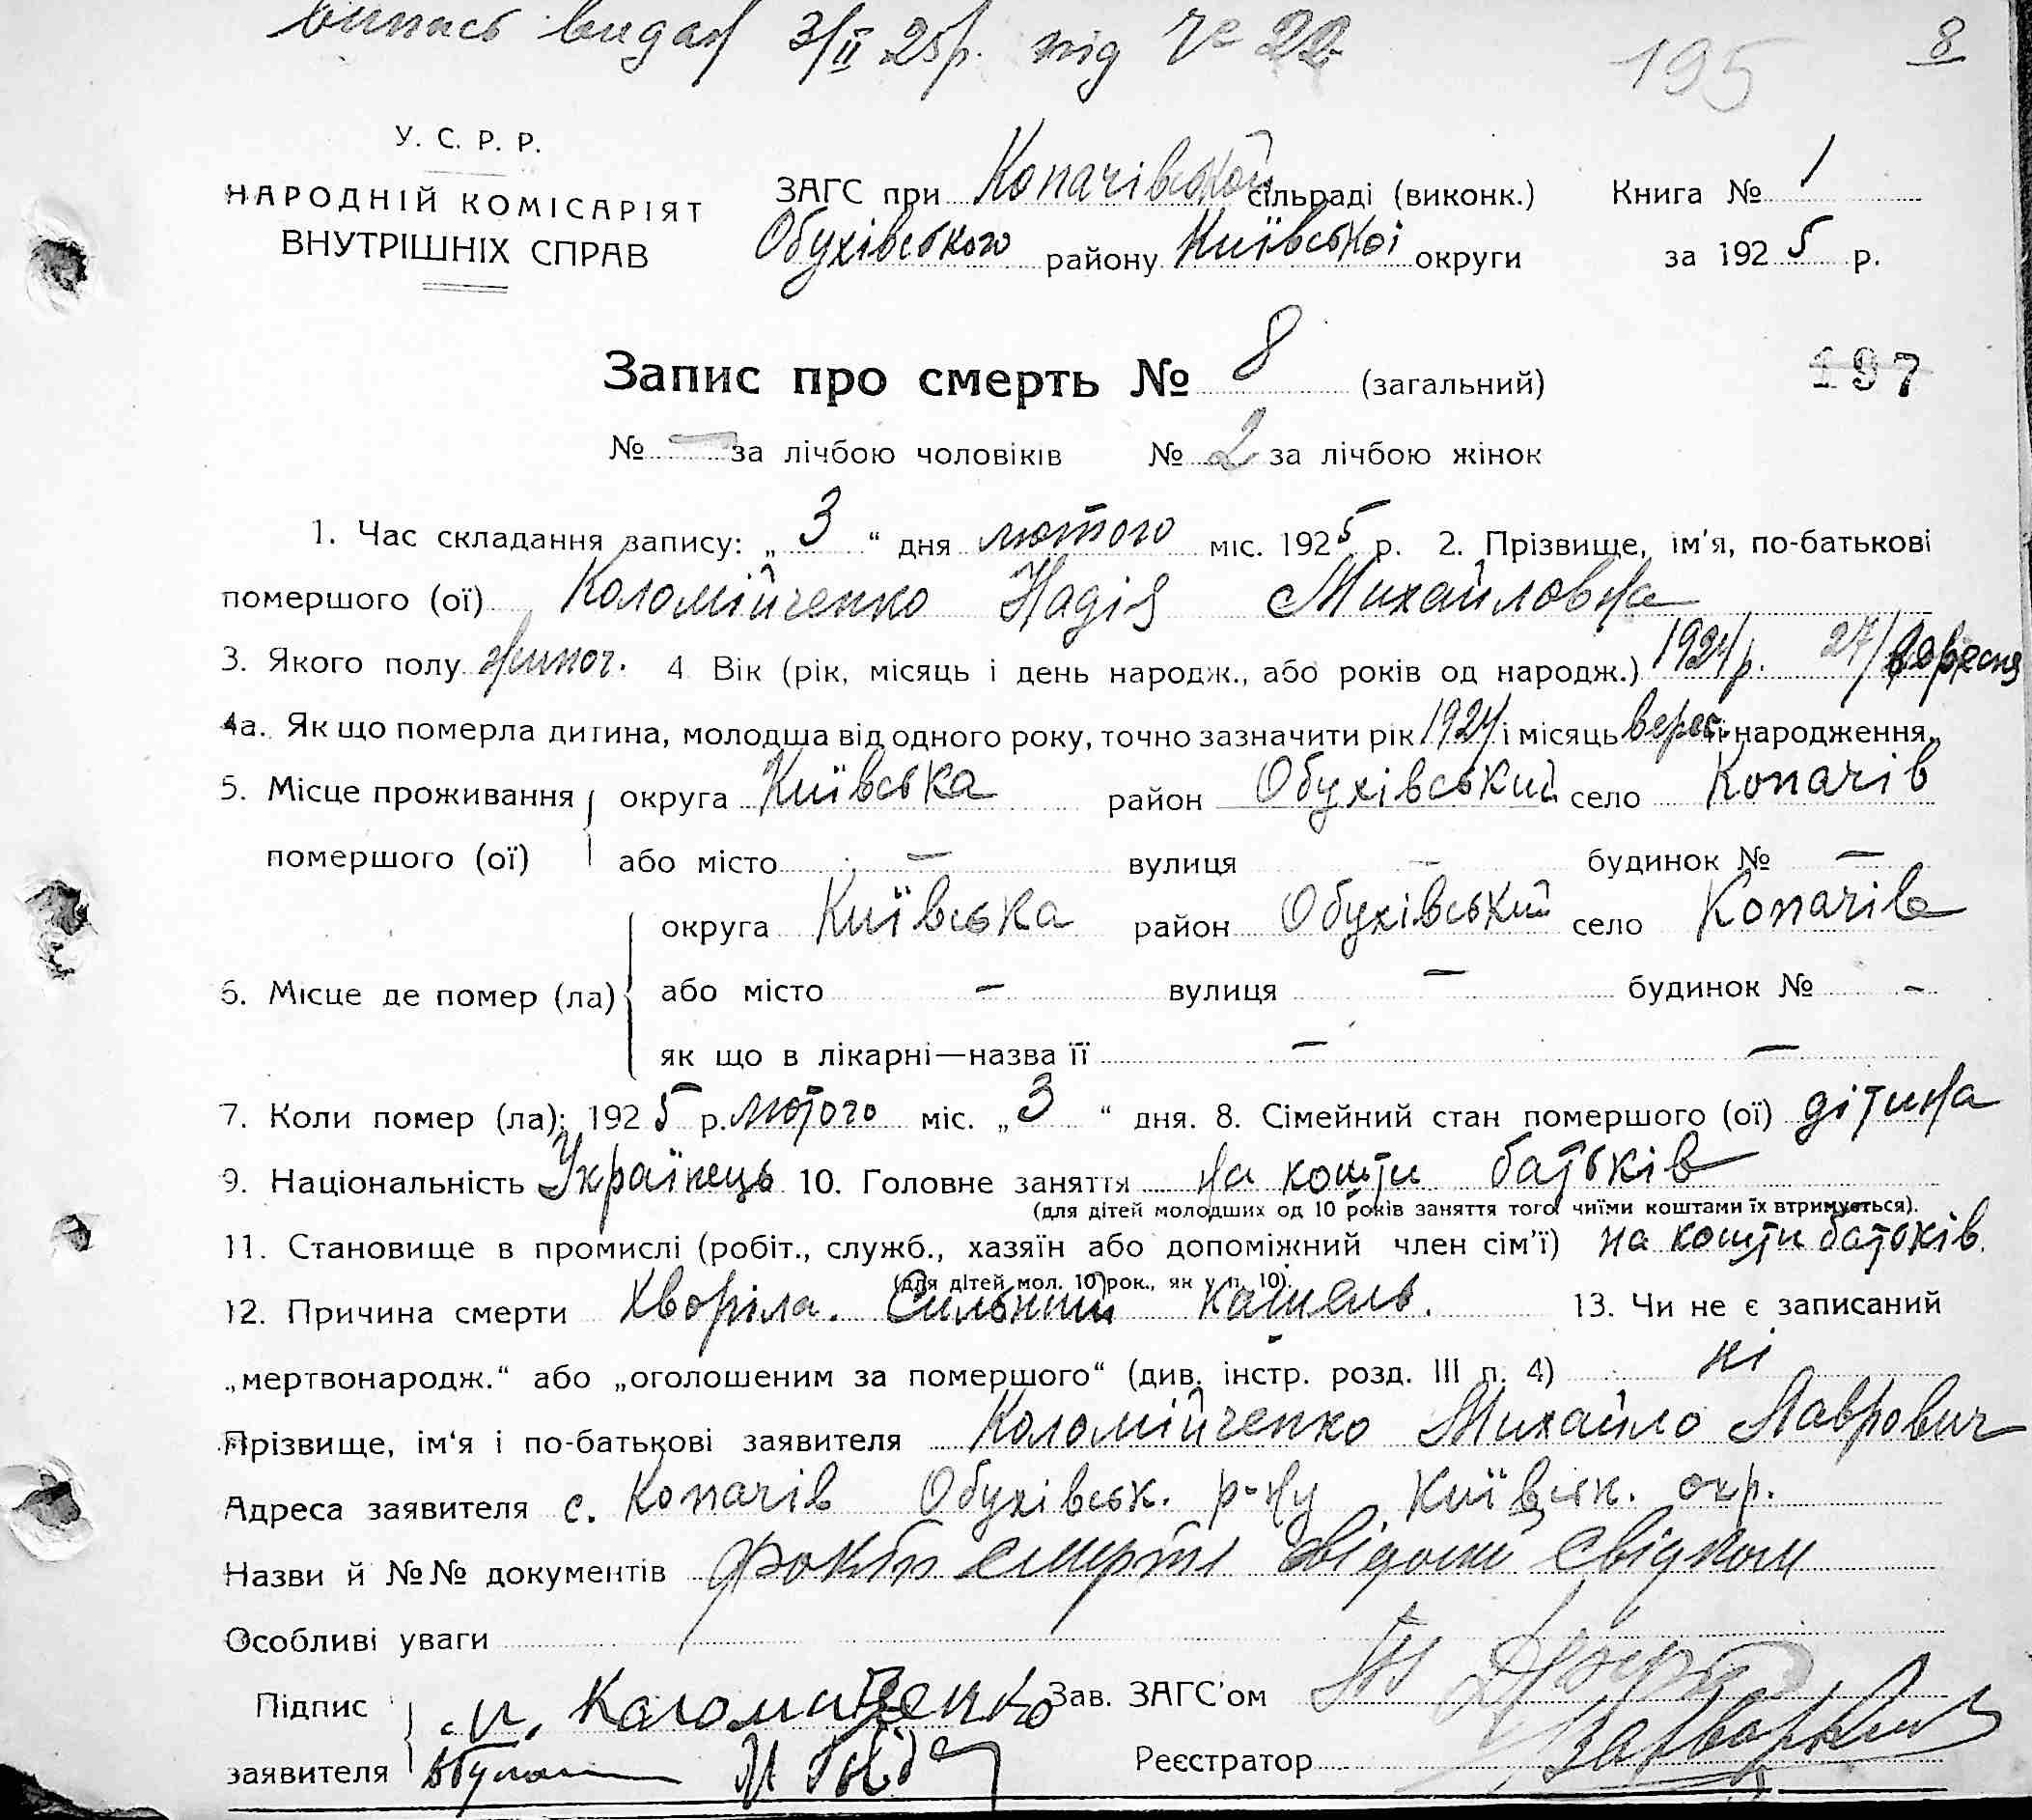 випись видан 3/II 25 р. під № 22
195
8
У. С. Р. Р.
НАРОДНІЙ КОМІСАРІЯТ
ВНУТРІШНІХ СПРАВ
ЗАГС при Копачівской сільраді (виконк.) Книга № 1
Обухівського району Київської округи за 1925 р.
Запис про смерть № 8 (загальний)
197
№ — за лічбою чоловіків № 2 за лічбою жінок
1. Час складання запису: „3“ дня лютого міс. 1925 р. 2. Прізвище, ім'я, по-батькові
помершого (ої) Коломійченко Надія Михайловна
3. Якого полу жиноч. 4 Вік (рік, місяць і день народж., або років од народж.) 1924 р. 27/вересня
4а. Як що померла дитина, молодша від одного року, точно зазначити рік 1924 і місяць верес. її народження.
5. Місце проживання округа Київська район Обухівський село Копачів
помершого (ої) або місто — вулиця — будинок № —
округа Київська район Обухівський село Копачів
6. Місце де помер (ла) або місто — вулиця — будинок № —
як що в лікарні—назва її — —
7. Коли помер (ла): 1925 р. лютого міс. „3“ дня. 8. Сімейний стан помершого (ої) дітина
9. Національність Українець 10. Головне заняття на кошти батьків
(для дітей молодших од 10 років заняття того, чиїми коштами їх втримується).
11. Становище в промислі (робіт., служб., хазяїн або допоміжний член сім'ї) на кошти батьків.
(для дітей мол. 10 рок., як у п. 10).
12. Причина смерти Хворіла. Сильний кашель. 13. Чи не є записаний
„мертвонародж.“ або „оголошеним за помершого“ (див. інстр. розд. III п. 4) ні
Прізвище, ім'я і по-батькові заявителя Коломійченко Михайло Лаврович
Адреса заявителя с. Копачів Обухівськ. р-ну Київськ. окр.
Назви й №№ документів смерти свідком
Особливі уваги
Підпис М. Каломиченко Зав. ЗАГС'ом
заявителя Реєстратор